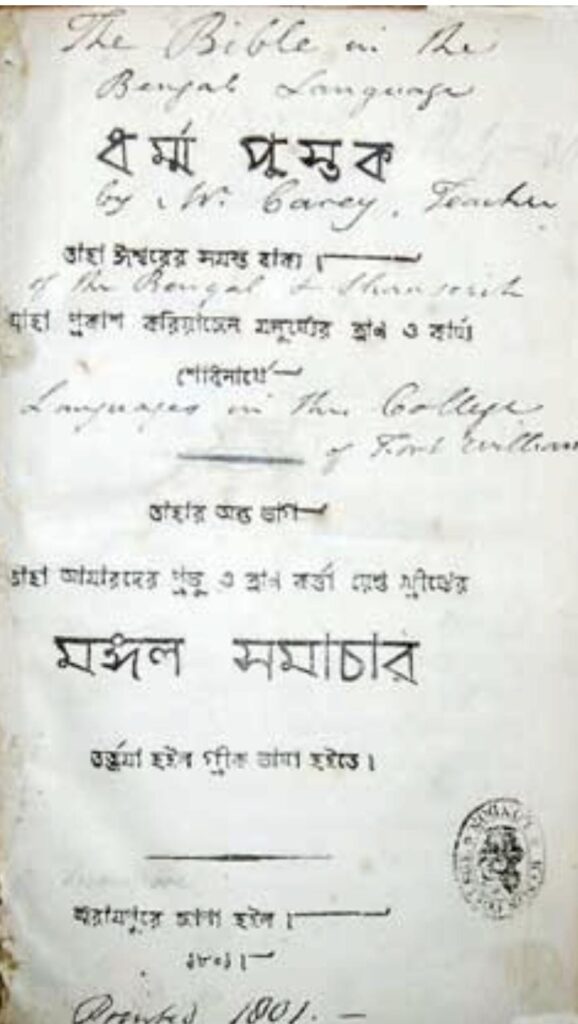 The Bible in the
Bengal Language
ধর্ম্ম পুস্তক
by W. Carey, Teacher
তাহা ঈশ্বরের সমস্ত বাক্য।
of the Bengal & Shanscrit
যাহা প্রকাশ করিয়াছেন মনুষ্যের ত্রান ও কার্য্য
শোধনার্থে
Languages in the College
of Fort William
তাহার অন্ত ভাগ
তাহা আমারদের প্রভু ও ত্রান কর্ত্তা য়েশু খ্রীষ্টের
মঙ্গল সমাচার
তর্জমা হইল গ্রীক ভাষা হইতে।
শ্রীরামপুরে ছাপা হইল।
১৮০১।
Printed 1801. —